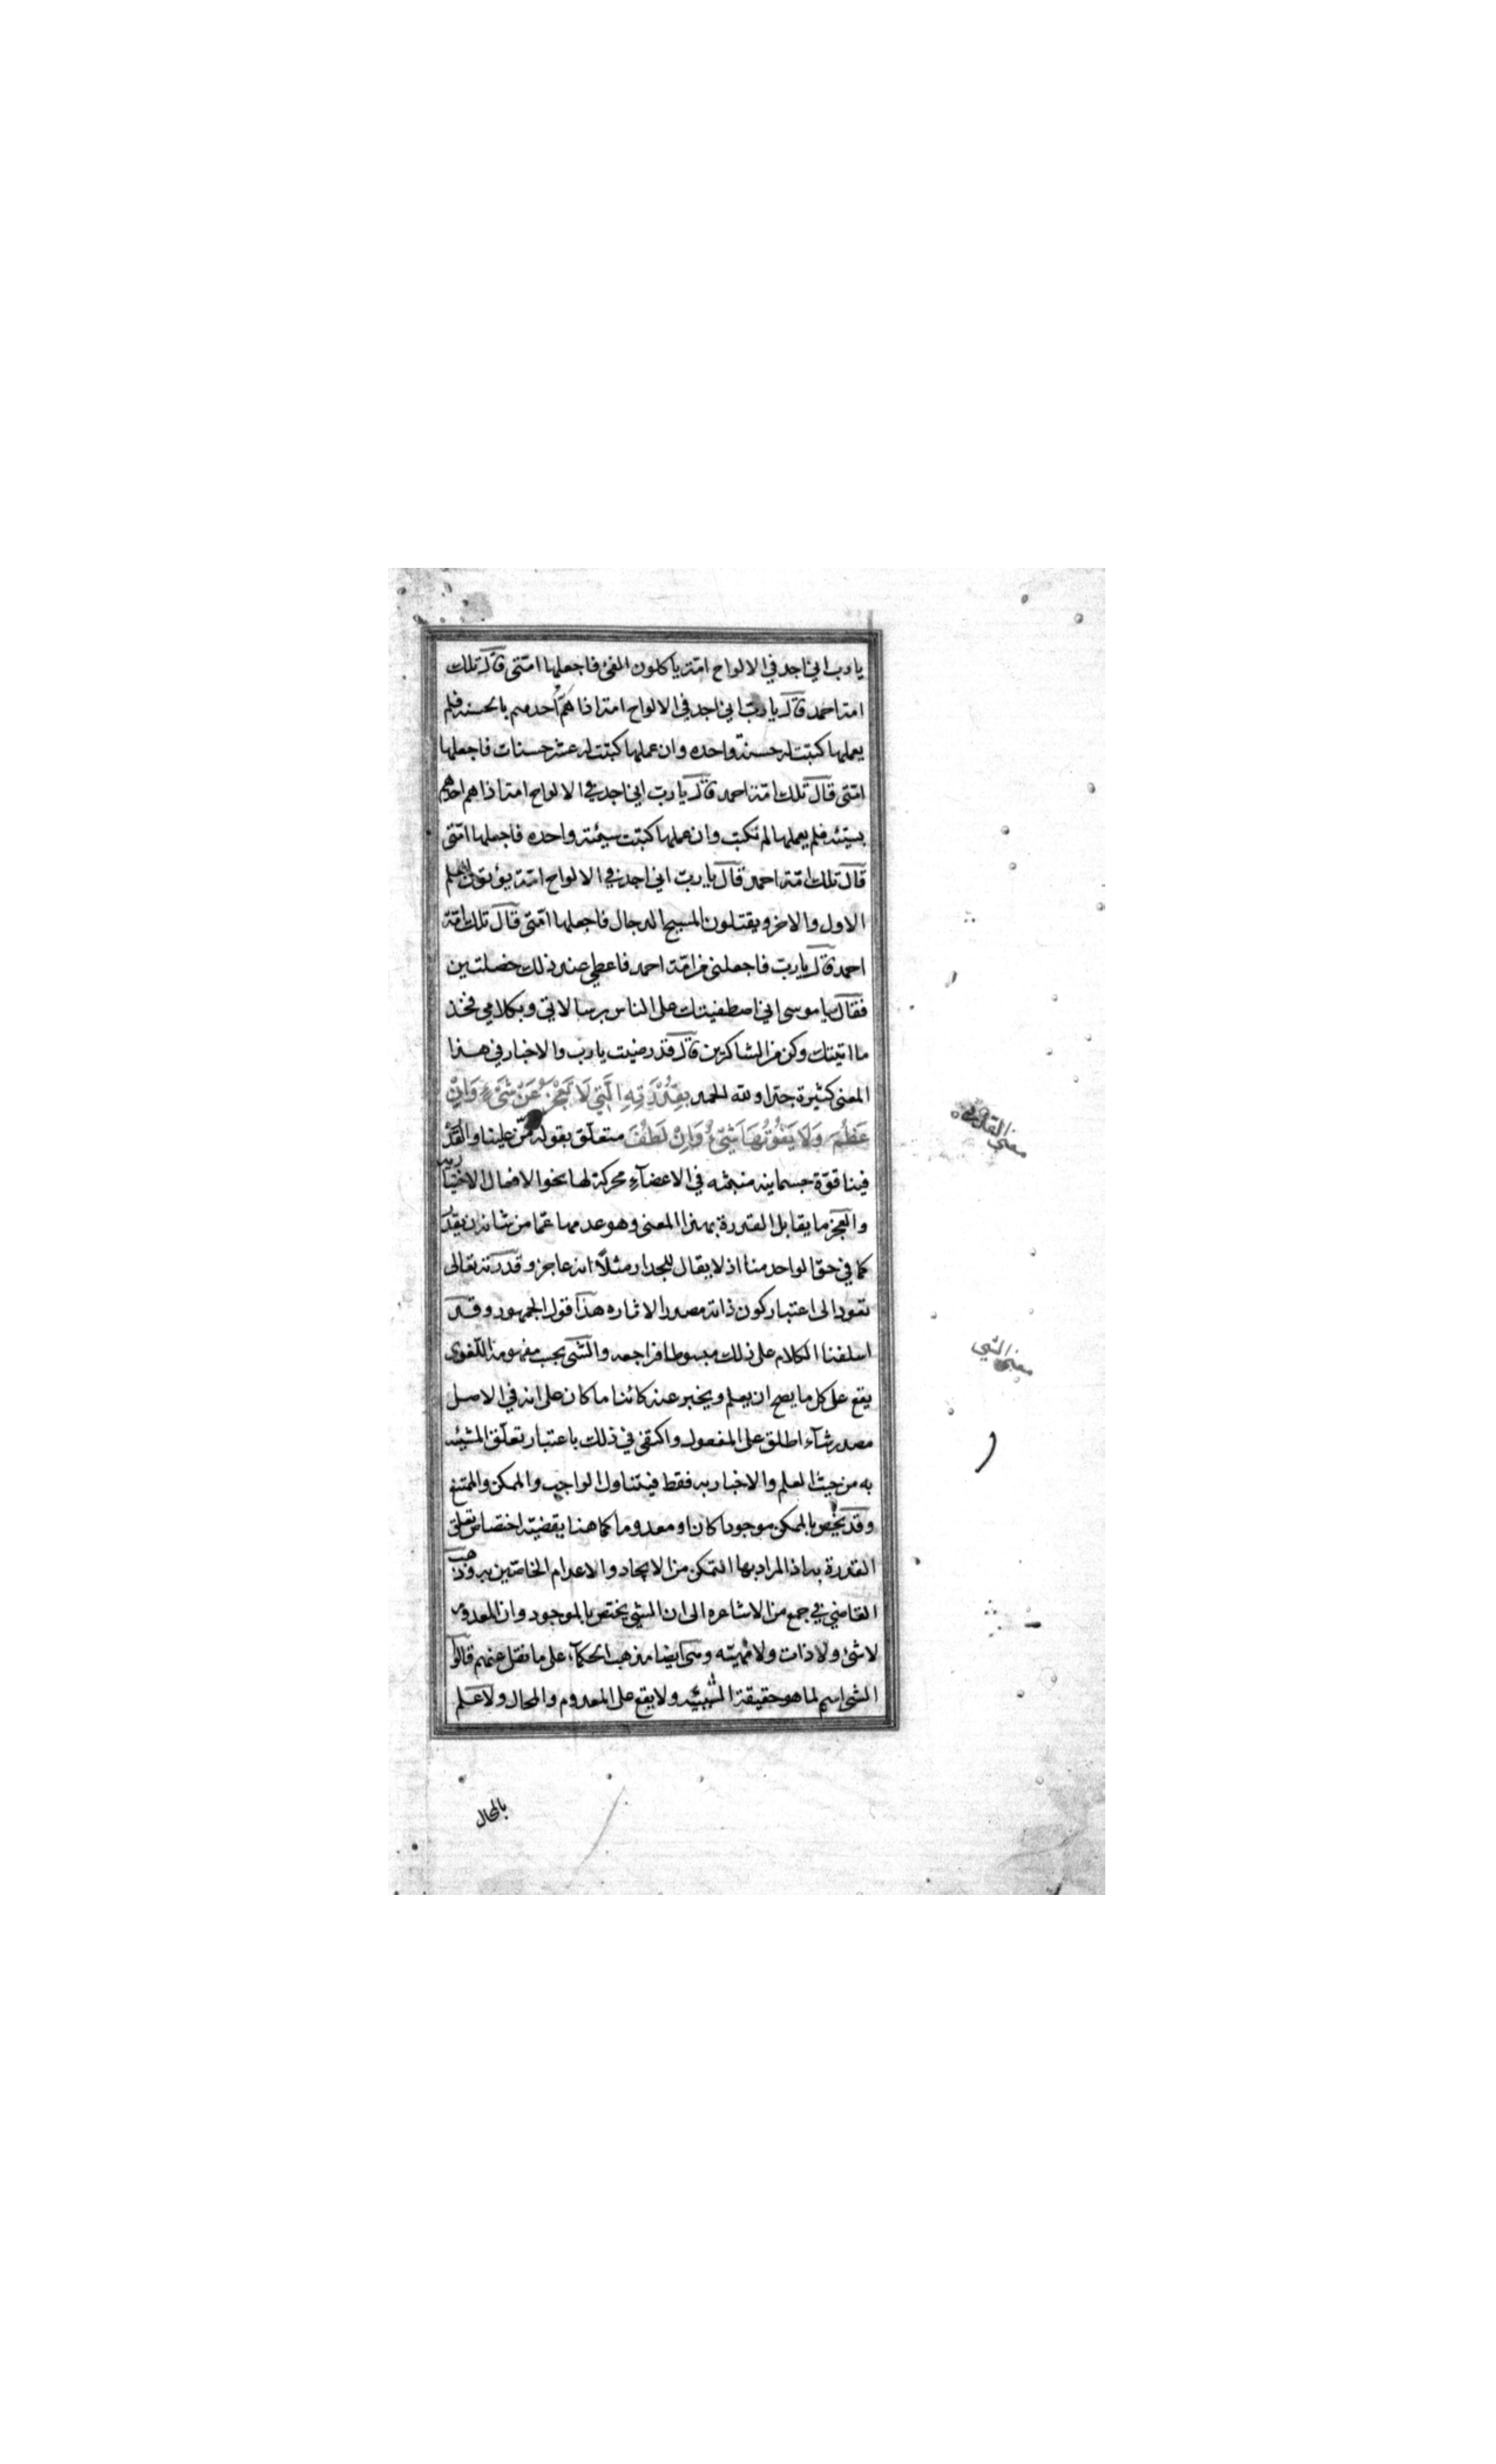 يا رب اني اجد في الالواح امة ياكلون الفئ فاجعلها امتى قال تلك
امة احمد قال يا رب اني اجد في الالواح امة اذا هم احدهم بالحسنة فلم
يعملها كتبت له حسنة واحده وان عملها كتبت له عشر حسنات فاجعلها
امتى قال تلك امة احمد قال يا رب اني اجد في الالواح امة اذا هم احدهم
بسيئة فلم يعملها لم تكتب وان عملها كتبت سيئة واحده فاجعلها امتى
قال تلك امة احمد قال يا رب اني اجد في الالواح امة يؤتون العلم
الاول والاخر ويقتلون المسيح الدجال فاجعلها امتى قال تلك امة
احمد قال يا رب فاجعلنى من امة احمد فاعطى عند ذلك خصلتين
فقال يا موسى اني اصطفيتك على الناس برسالاتي وبكلامي فخذ
ما اتيتك وكن من الشاكرين قال قد رضيت يا رب والاخبار في هذا
المعنى كثيرة جدا ولله الحمد بِقُدْرَتِهِ الَّتِي لَا تَعْجِزُ عَنْ شَيْءٍ وَاِنْ
عَظُمَ وَلَا يَفُوتُهَا شَيْءٌ وَاِنْ لَطُفَ متعلق بقوله من علينا والقد
رة
فينا قوة جسمانيه منبثه في الاعضآء محركة لها نحو الافعال الاختيا
ريه
والعجز ما يقابل القدرة بهذا المعنى وهو عدمها عما من شانه ان يقدر
كما في حق الواحد منا اذ لا يقال للجدار مثلاً انه عاجز وقدرته تعالى
تعود الى اعتبار كون ذاته مصدرا لاثاره هذا قول الجمهور وقد
اسلفنا الكلام على ذلك مبسوطا فراجعه والشئ بحسب مفهومه اللغوى
يقع على كل ما يصح ان يعلم ويخبر عنه كائنا ما كان على انه في الاصل
مصدر شآء اطلق على المفعول واكتفى في ذلك باعتبار تعلق المشيئه
به من حيث العلم والاخبار به فقط فيتناول الواجب والممكن والممتنع
وقد يخص بالممكن موجودا كان او معدوما كما هنا بقضية اختصاص تعلق
القدرة به اذ المراد بها التمكن من الايجاد والاعدام الخاصين به وذهب
القاضي في جمع من الاشاعره الى ان الشئ يختص بالموجود وان المعدوم
لا شئ ولا ذات ولا مهيته وهى ايضا مذهب الحكمآء على ما نقل عنهم قالوا
الشئ اسم لما هو حقيقة الشيئيه ولا يقع على المعدوم والمحال ولا علم
بالمحال
معنى القدرة
معنى الشئ